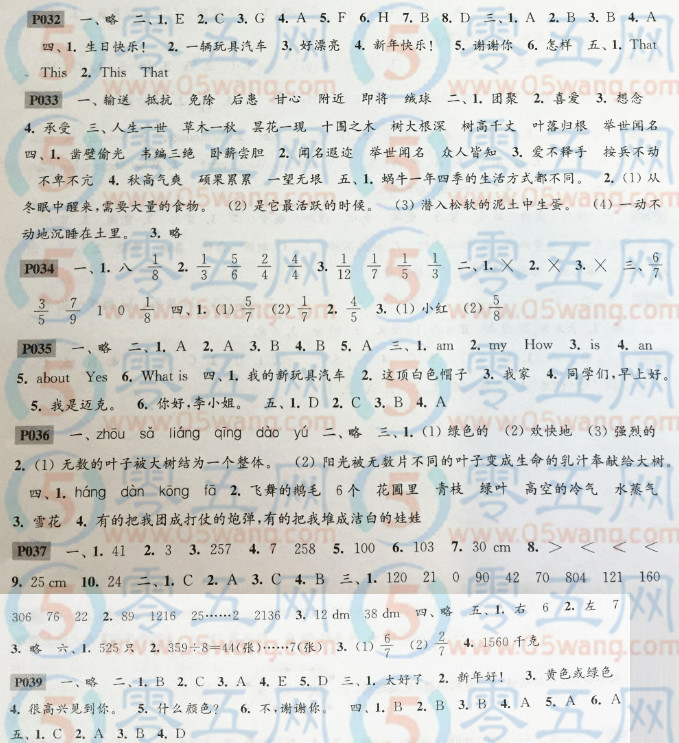 P032 一、略 二、1. E 2. C 3. G 4. A 5. F 6. H 7. B 8. D 三、1. A 2. B 3. B 4. A
四、1. 生日快乐！ 2. 一辆玩具汽车 3. 好漂亮 4. 新年快乐！ 5. 谢谢你 6. 怎样 五、1. That
This 2. This That
P033 一、输送 抵抗 免除 后患 甘心 附近 即将 绒球 二、1. 团聚 2. 喜爱 3. 想念
4. 承受 三、人生一世 草木一秋 昙花一现 十围之木 树大根深 树高千丈 叶落归根 举世闻名
四、1. 凿壁偷光 韦编三绝 卧薪尝胆 2. 闻名遐迩 举世闻名 众人皆知 3. 爱不释手 按兵不动
不卑不亢 4. 秋高气爽 硕果累累 一望无垠 五、1. 蜗牛一年四季的生活方式都不同。 2. (1) 从
冬眠中醒来,需要大量的食物。 (2) 是它最活跃的时候。 (3) 潜入松软的泥土中生蛋。 (4) 一动不
动地沉睡在土里。 3. 略
P034 一、1. 八 1/8 2. 1/3 5/6 2/4 4/4 3. 1/12 1/7 1/5 1/3 二、1. × 2. × 3. × 三、6/7
3/5 7/9 1 0 1/8 四、1. (1) 5/7 (2) 1/7 2. 4/5 3. (1) 小红 (2) 5/8
P035 一、略 二、1. A 2. A 3. B 4. B 5. A 三、1. am 2. my How 3. is 4. an
5. about Yes 6. What is 四、1. 我的新玩具汽车 2. 这顶白色帽子 3. 我家 4. 同学们,早上好。
5. 我是迈克。 6. 你好,李小姐。 五、1. D 2. C 3. B 4. A
P036 一、zhōu sǎ liáng qīng dào yú 二、略 三、1. (1) 绿色的 (2) 欢快地 (3) 强烈的
2. (1) 无数的叶子被大树结为一个整体。 (2) 阳光被无数片不同的叶子变成生命的乳汁奉献给大树。
四、1. háng dàn kōng fā 2. 飞舞的鹅毛 6个 花圃里 青枝 绿叶 高空的冷气 水蒸气
3. 雪花 4. 有的把我团成打仗的炮弹,有的把我堆成洁白的娃娃
P037 一、1. 41 2. 3 3. 257 4. 7 258 5. 100 6. 103 7. 30 cm 8. > < < <
9. 25 cm 10. 24 二、1. C 2. A 3. C 4. B 三、1. 120 21 0 90 42 70 804 121 160
306 76 22 2. 89 1216 25……2 2136 3. 12 dm 38 dm 四、略 五、1. 右 6 2. 左 7
3. 略 六、1. 525 只 2. 359÷8=44(张)……7(张) 3. (1) 6/7 (2) 2/7 4. 1560 千克
P039 一、略 二、1. B 2. C 3. A 4. E 5. D 三、1. 太好了 2. 新年好！ 3. 黄色或绿色
4. 很高兴见到你。 5. 什么颜色？ 6. 不,谢谢你。 四、1. B 2. B 3. B 4. A 5. A 6. A
五、1. C 2. A 3. B 4. D
零五网
www.05wang.com